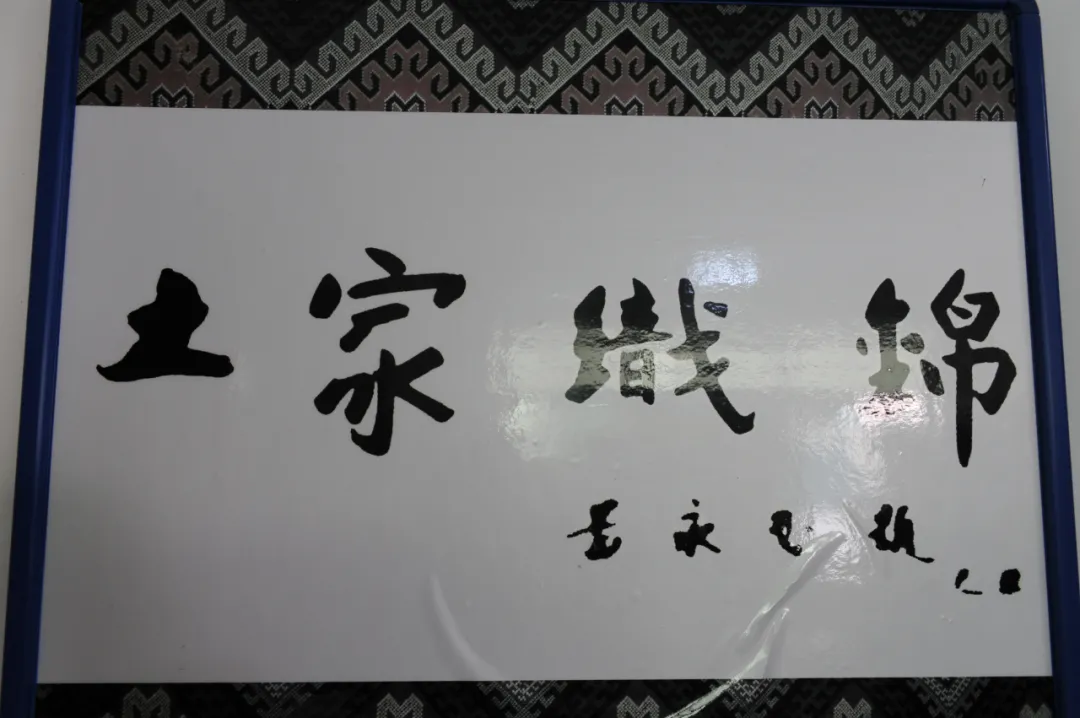 土家織錦
黄永玉題